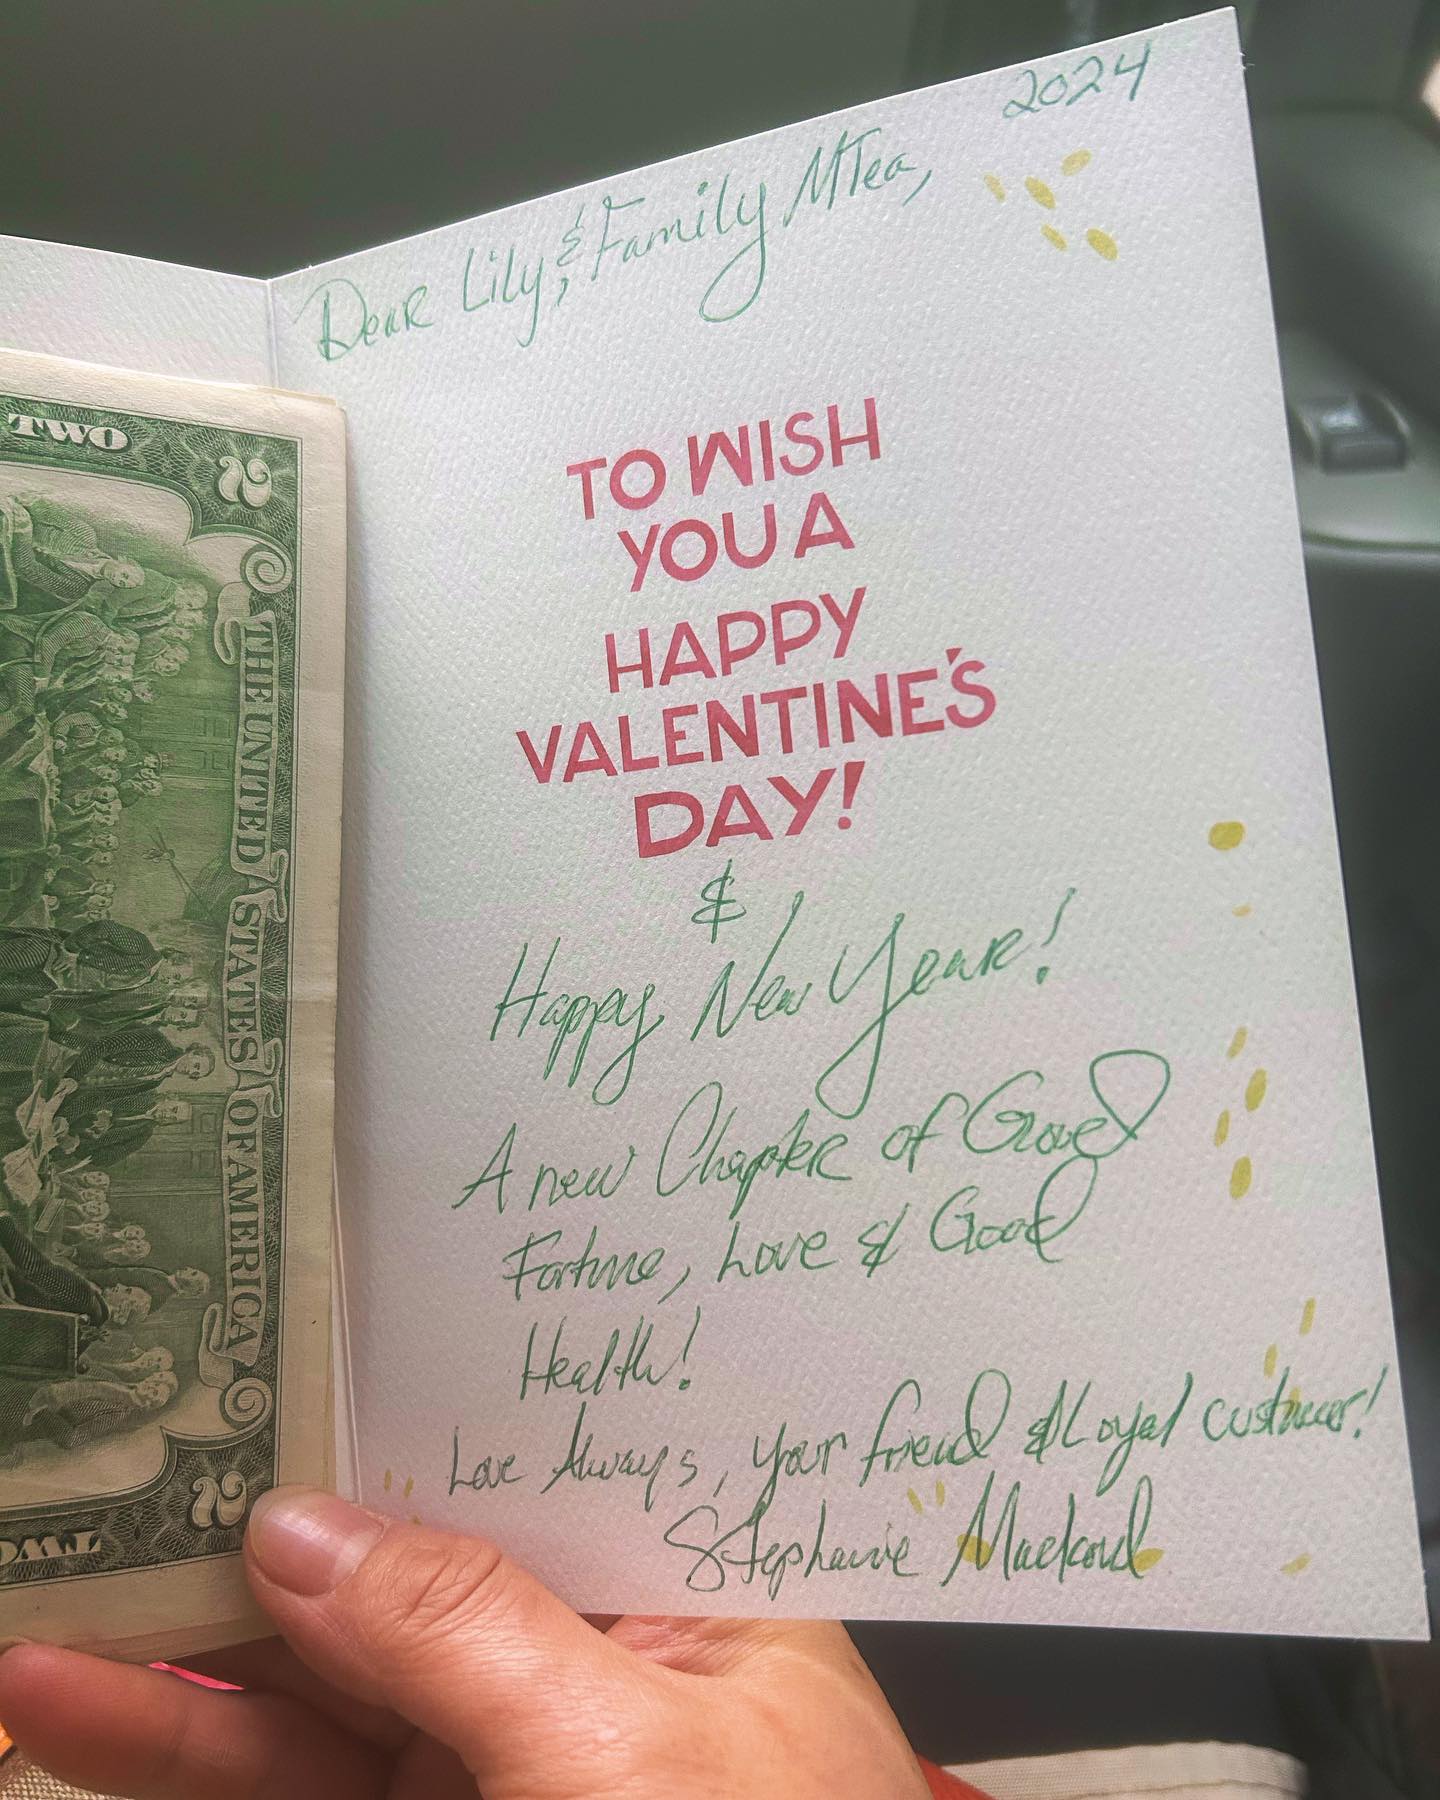 2024
Dear Lily, & Family MTea,
TO WISH
YOU A
HAPPY
VALENTINE'S
DAY!
&
Happy New Year!
A new Chapter of Good
Fortune, Love & Good
Health!
Love Always, your friend & Loyal customer!
Stephanie
TWO
2
THE UNITED STATES OF AMERICA
2
TWO